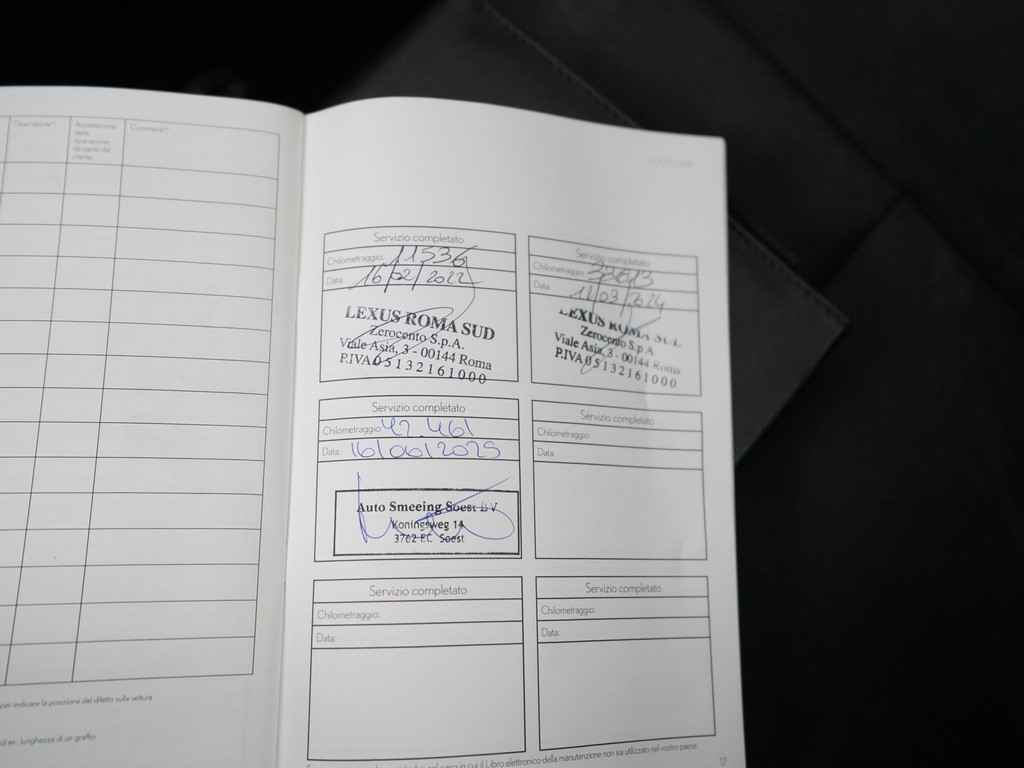 Descrizione*¹
Accettazione
della
riparazione
da parte del
cliente
Commenti*²
Servizio completato
Chilometraggio: 11536
Data: 16/02/2022
LEXUS ROMA SUD
Zerocento S.p.A.
Viale Asia, 3 - 00144 Roma
P.IVA 05132161000
Servizio completato
Chilometraggio: 33613
Data: 11/03/2024
LEXUS ROMA SUD
Zerocento S.p.A.
Viale Asia, 3 - 00144 Roma
P.IVA 05132161000
Servizio completato
Chilometraggio: 42.461
Data: 16/06/2025
Auto Smeeing Soest BV
Koningsweg 14
3762 EC Soest
Servizio completato
Chilometraggio:
Data:
Servizio completato
Chilometraggio:
Data:
Servizio completato
Chilometraggio:
Data:
per indicare la posizione del difetto sulla vettura
ad es. lunghezza di un graffio
il Libro elettronico della manutenzione non sia utilizzato nel vostro paese.